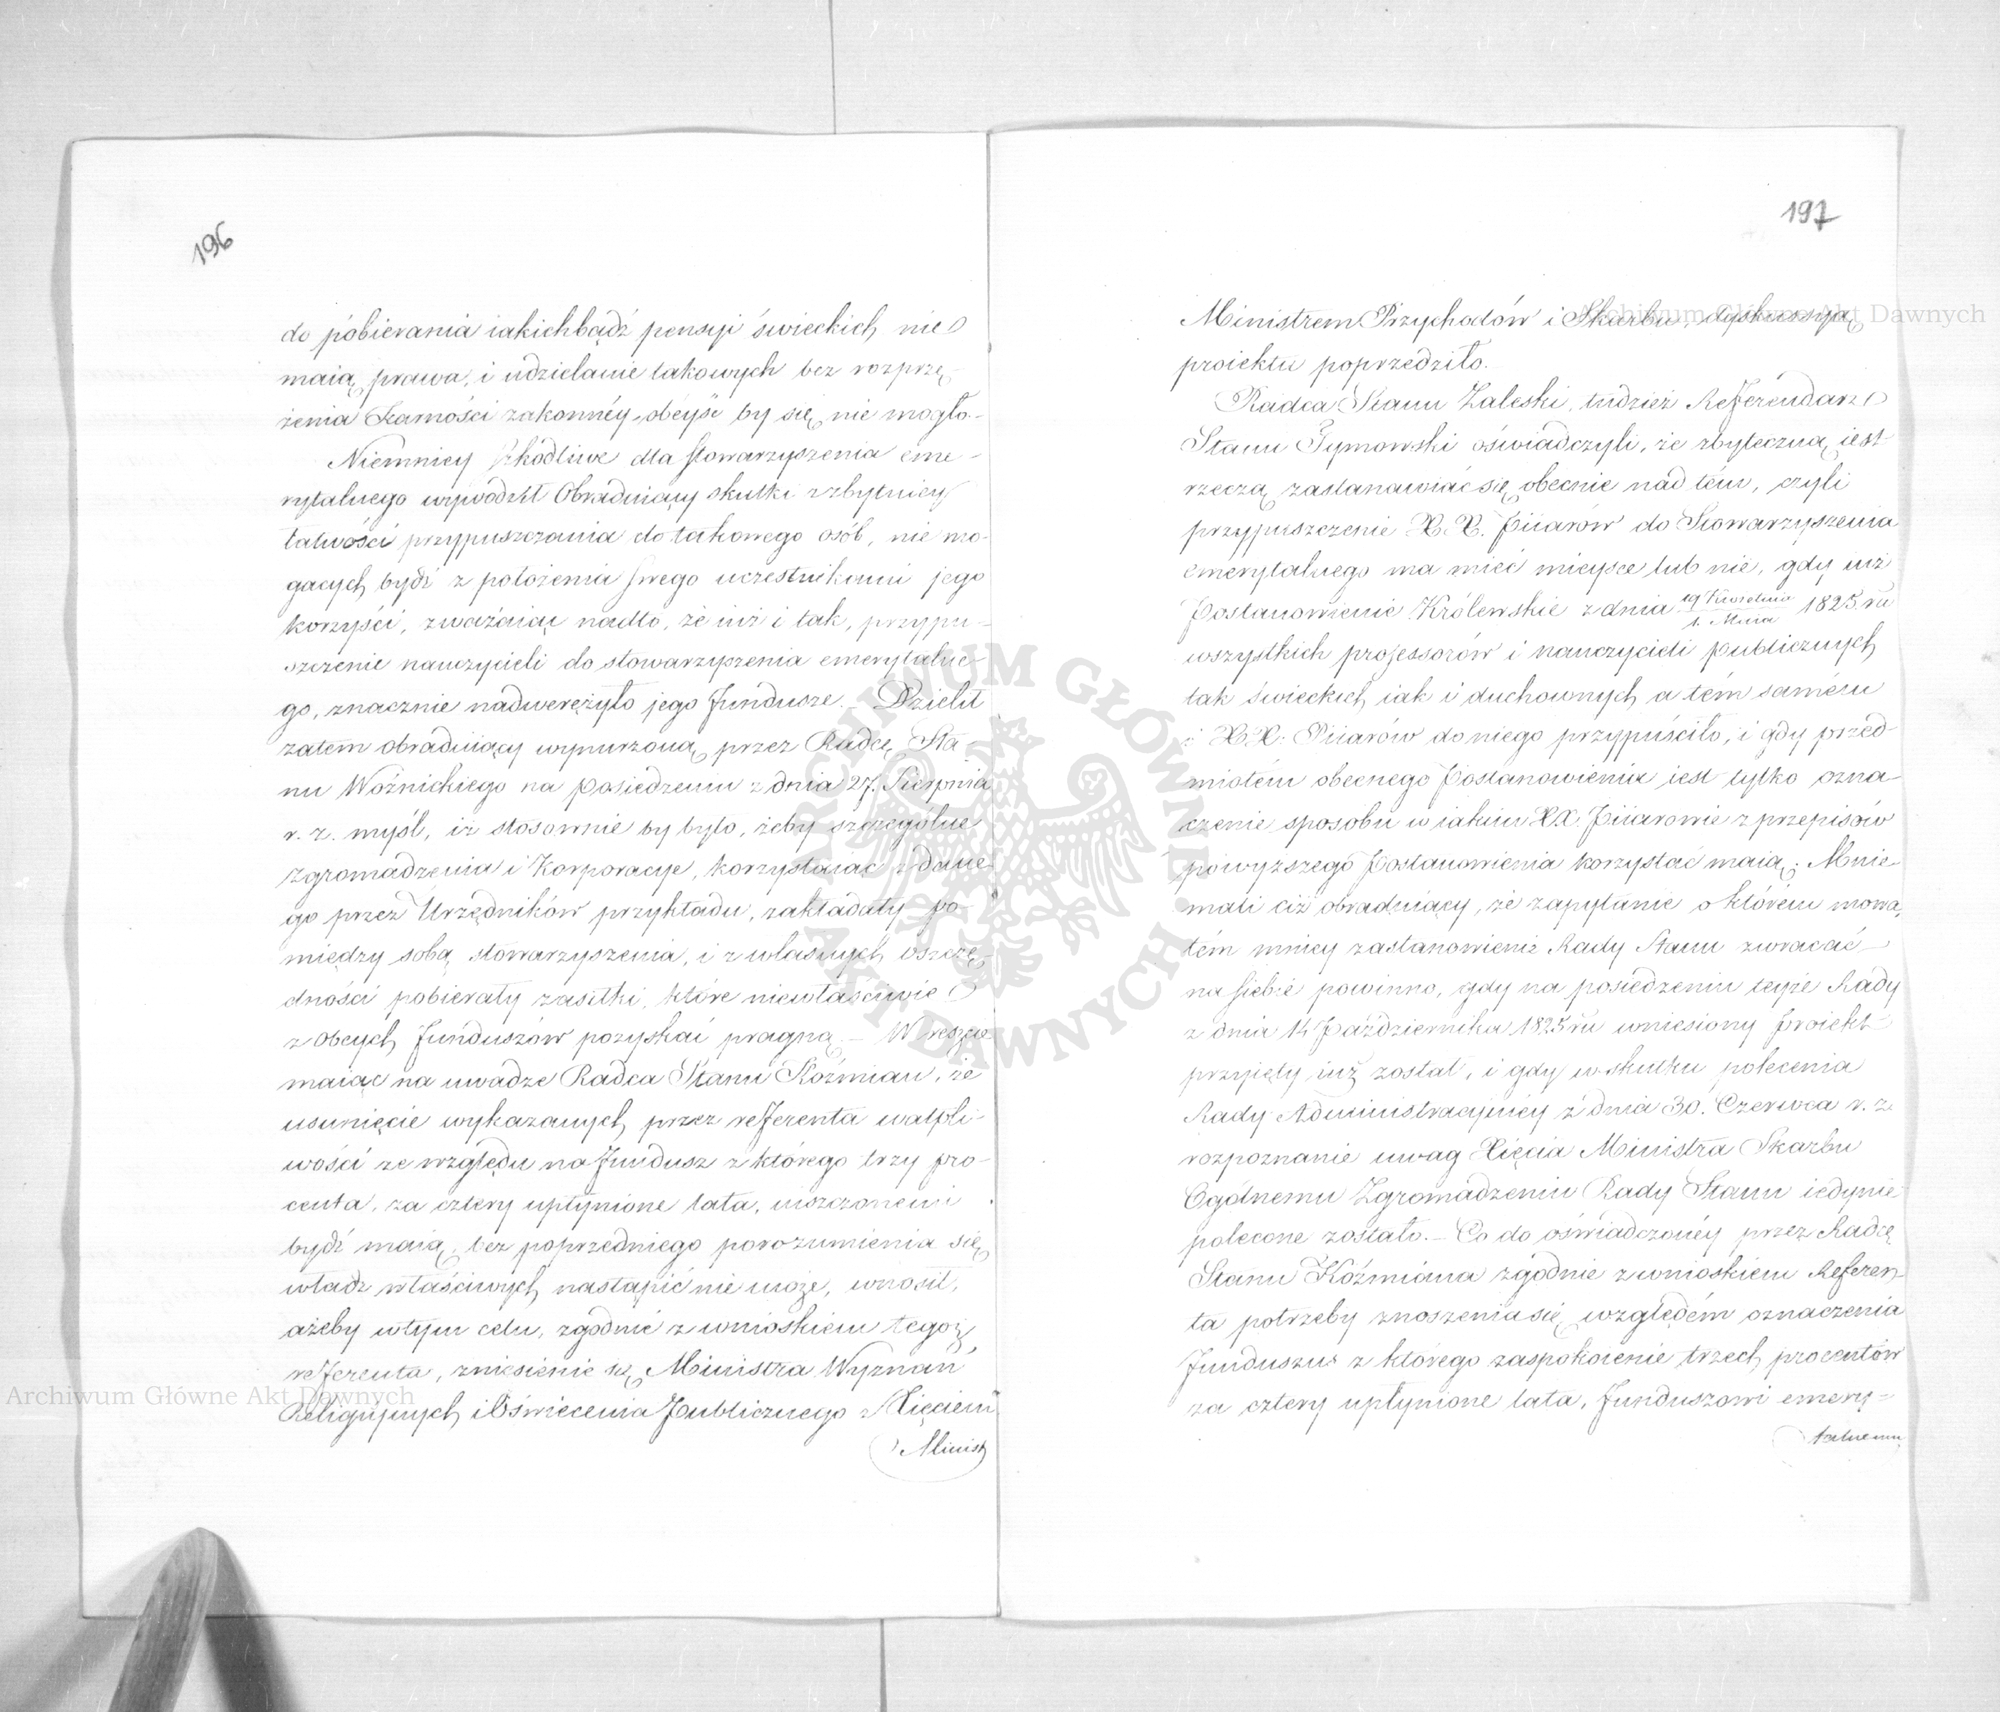 196
do pobierania iakichbądź pensyi świeckich nie
maią prawa, i udzielanie takowych bez rozprzę-
żenia Karności zakonnéy obeyść by się nie mogło.
Niemniey szkodliwe dla stowarzyszenia eme-
rytalnego wywodził Obraduiący skutki z zbytniey
łatwości przypuszczania do takowego osób, nie mo-
gących bydź z położenia swego uczestnikami jego
korzyści, zważaiąc nadto, że iuż i tak, przypu-
szczenie nauczycieli do stowarzyszenia emerytalne-
go, znacznie nadwerężyło jego fundusze. – Dzielił
zatem obraduiący wynurzoną przez Radcę Sta-
nu Woźnickiego na posiedzeniu z dnia 27. Sierpnia
r. z. myśl, iż stosownie by było, żeby szczególne
zgromadzenia i Korporacye, korzystaiąc z dane-
go przez Urzędników przykładu, zakładały po-
między sobą stowarzyszenia, i z własnych oszczę-
dności pobierały zasiłki, które niewłaściwie
z obcych funduszów pozyskać pragną. – Wreszcie
maiąc na uwadze Radca Stanu Koźmian, że
usunięcie wykazanych przez refferenta wątpli-
wości ze względu na fundusz z którego trzy pro-
centa, za cztery upłynione lata, uiszczonemi
bydź maią, bez poprzedniego porozumienia się
władz właściwych nastąpić nie może, wnosił,
ażeby w tym celu, zgodnie z wnioskiem tegoż
refferenta, zniesienie się Ministra Wyznań
Religijnych i Oświecenia Publicznego z Xięciem
Minist
197
Ministrem Przychodów i Skarbu, dyskussyą
proiektu poprzedziło.
Radca Stanu Zaleski, tudzież Refferendarz
Stanu Tymowski oświadczyli, że zbyteczną iest
rzeczą zastanawiać się obecnie nad tém, czyli
przypuszczenie XX. Piiarów do Stowarzyszenia
emerytalnego ma mieć mieysce lub nie, gdy iuż
Postanowienie Królewskie z dnia 19 Kwietnia / 1. Maia 1825. ru
wszystkich professorów i nauczycieli publicznych
tak świeckich iak i duchownych a tém samém
i XX. Piiarów do niego przypuściło, i gdy przed-
miotem obecnego Postanowienia iest tylko ozna-
czenie sposobu w iakim XX. Piiarowie z przepisów
powyższego Postanowienia korzystać maią; Mnie-
mali ciż obraduiący, że zapytanie o którém mowa,
tém mniey zastanowienie Rady Stanu zwracać
na siebie powinno, gdy na posiedzeniu teyże Rady
z dnia 14 Października 1825 ru wniesiony proiekt
przyięty iuż został, i gdy w skutku polecenia
Rady Administracyinéy z dnia 30. Czerwca r. z.
rozpoznanie uwag Xięcia Ministra Skarbu
Ogólnemu Zgromadzeniu Rady Stanu iedynie
polecone zostało. – Co do oświadczonéy przez Radcę
Stanu Koźmiana zgodnie z wnioskiem Referen-
ta potrzeby znoszenia się względem oznaczenia
funduszu z którego zaspokoienie trzech procentów
za cztery upłynione lata, funduszowi emery-
talnemu
Archiwum Główne Akt Dawnych
Archiwum Główne Akt Dawnych
ARCHIWUM GŁÓWNE AKT DAWNYCH